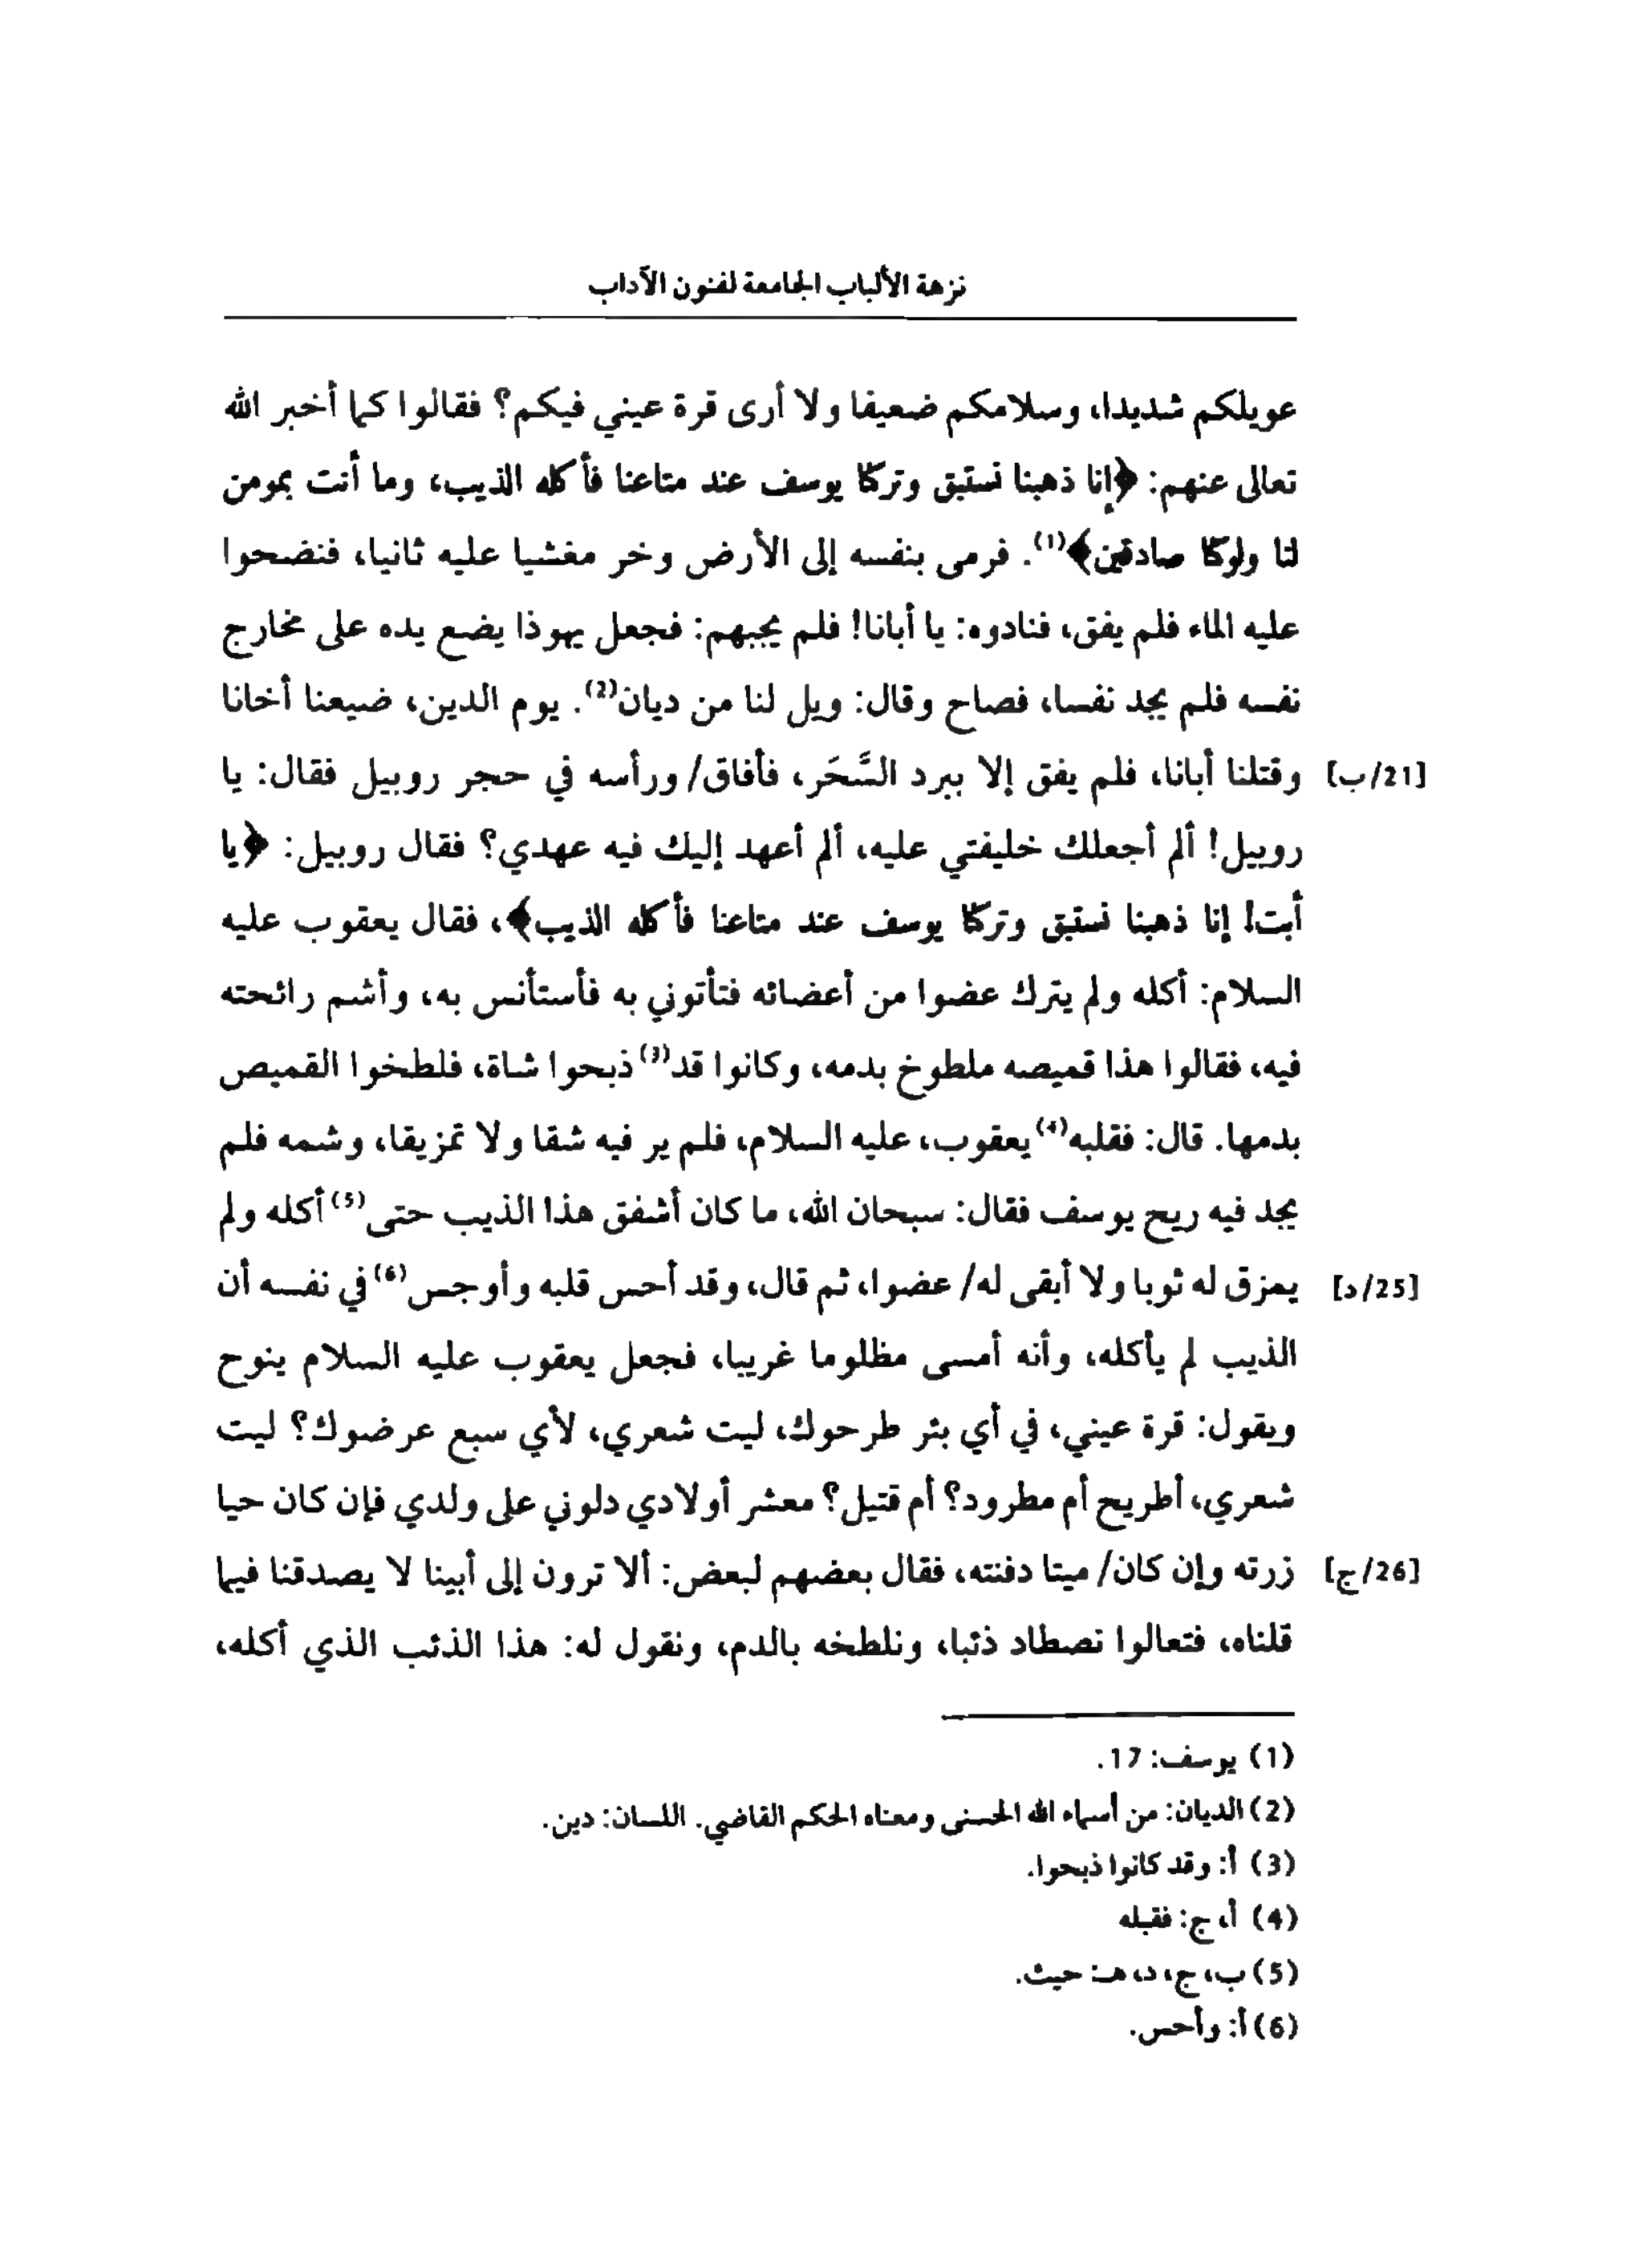 نزهة الألباب الجامعة لفنون الآداب
عويلكم شديدا، وسلامكم ضعيفا ولا أرى قرة عيني فيكم؟ فقالوا كما أخبر الله
تعالى عنهم: ﴿إنا ذهبنا نستبق وتركنا يوسف عند متاعنا فأكله الذيب، وما أنت بمومن
لنا ولو كنا صادقين﴾(1). فرمى بنفسه إلى الأرض وخر مغشيا عليه ثانيا، فنضحوا
عليه الماء فلم يفق، فنادوه: يا أبانا! فلم يجبهم: فجعل يهوذا يضع يده على مخارج
نفسه فلم يجد نفسا، فصاح وقال: ويل لنا من ديان(2). يوم الدين، ضيعنا أخانا
[21/ب] وقتلنا أبانا، فلم يفق إلا ببرد السَّحَر، فأفاق/ ورأسه في حجر روبيل فقال: يا
روبيل! ألم أجعلك خليفتي عليه، ألم أعهد إليك فيه عهدي؟ فقال روبيل: ﴿يا
أبت! إنا ذهبنا نستبق وتركنا يوسف عند متاعنا فأكله الذيب﴾، فقال يعقوب عليه
السلام: أكله ولم يترك عضوا من أعضائه فتأتوني به فأستأنس به، وأشم رائحته
فيه، فقالوا هذا قميصه ملطوخ بدمه، وكانوا قد(3) ذبحوا شاة، فلطخوا القميص
بدمها. قال: فقلبه(4) يعقوب، عليه السلام، فلم ير فيه شقا ولا تمزيقا، وشمه فلم
يجد فيه ريح يوسف فقال: سبحان الله، ما كان أشفق هذا الذيب حتى(5) أكله ولم
[25/د] يمزق له ثوبا ولا أبقى له/ عضوا، ثم قال، وقد أحس قلبه وأوجس(6) في نفسه أن
الذيب لم يأكله، وأنه أمسى مظلوما غريبا، فجعل يعقوب عليه السلام ينوح
ويقول: قرة عيني، في أي بئر طرحوك، ليت شعري، لأي سبع عرضوك؟ ليت
شعري، أطريح أم مطرود؟ أم قتيل؟ معشر أولادي دلوني على ولدي فإن كان حيا
[26/ج] زرته وإن كان/ ميتا دفنته، فقال بعضهم لبعض: ألا ترون إلى أبينا لا يصدقنا فيما
قلناه، فتعالوا نصطاد ذئبا، ونلطخه بالدم، ونقول له: هذا الذئب الذي أكله،
(1) يوسف: 17.
(2) الديان: من أسماء الله الحسنى ومعناه الحكم القاضي. اللسان: دين.
(3) أ: وقد كانوا ذبحوا.
(4) أ، ج: فقبله
(5) ب، ج، د، هـ: حيث.
(6) أ: وأحس.